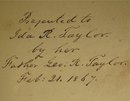 Presented to
Ida R. Taylor.
by her
Father Geo. R. Taylor.
Feb: 21. 1867.